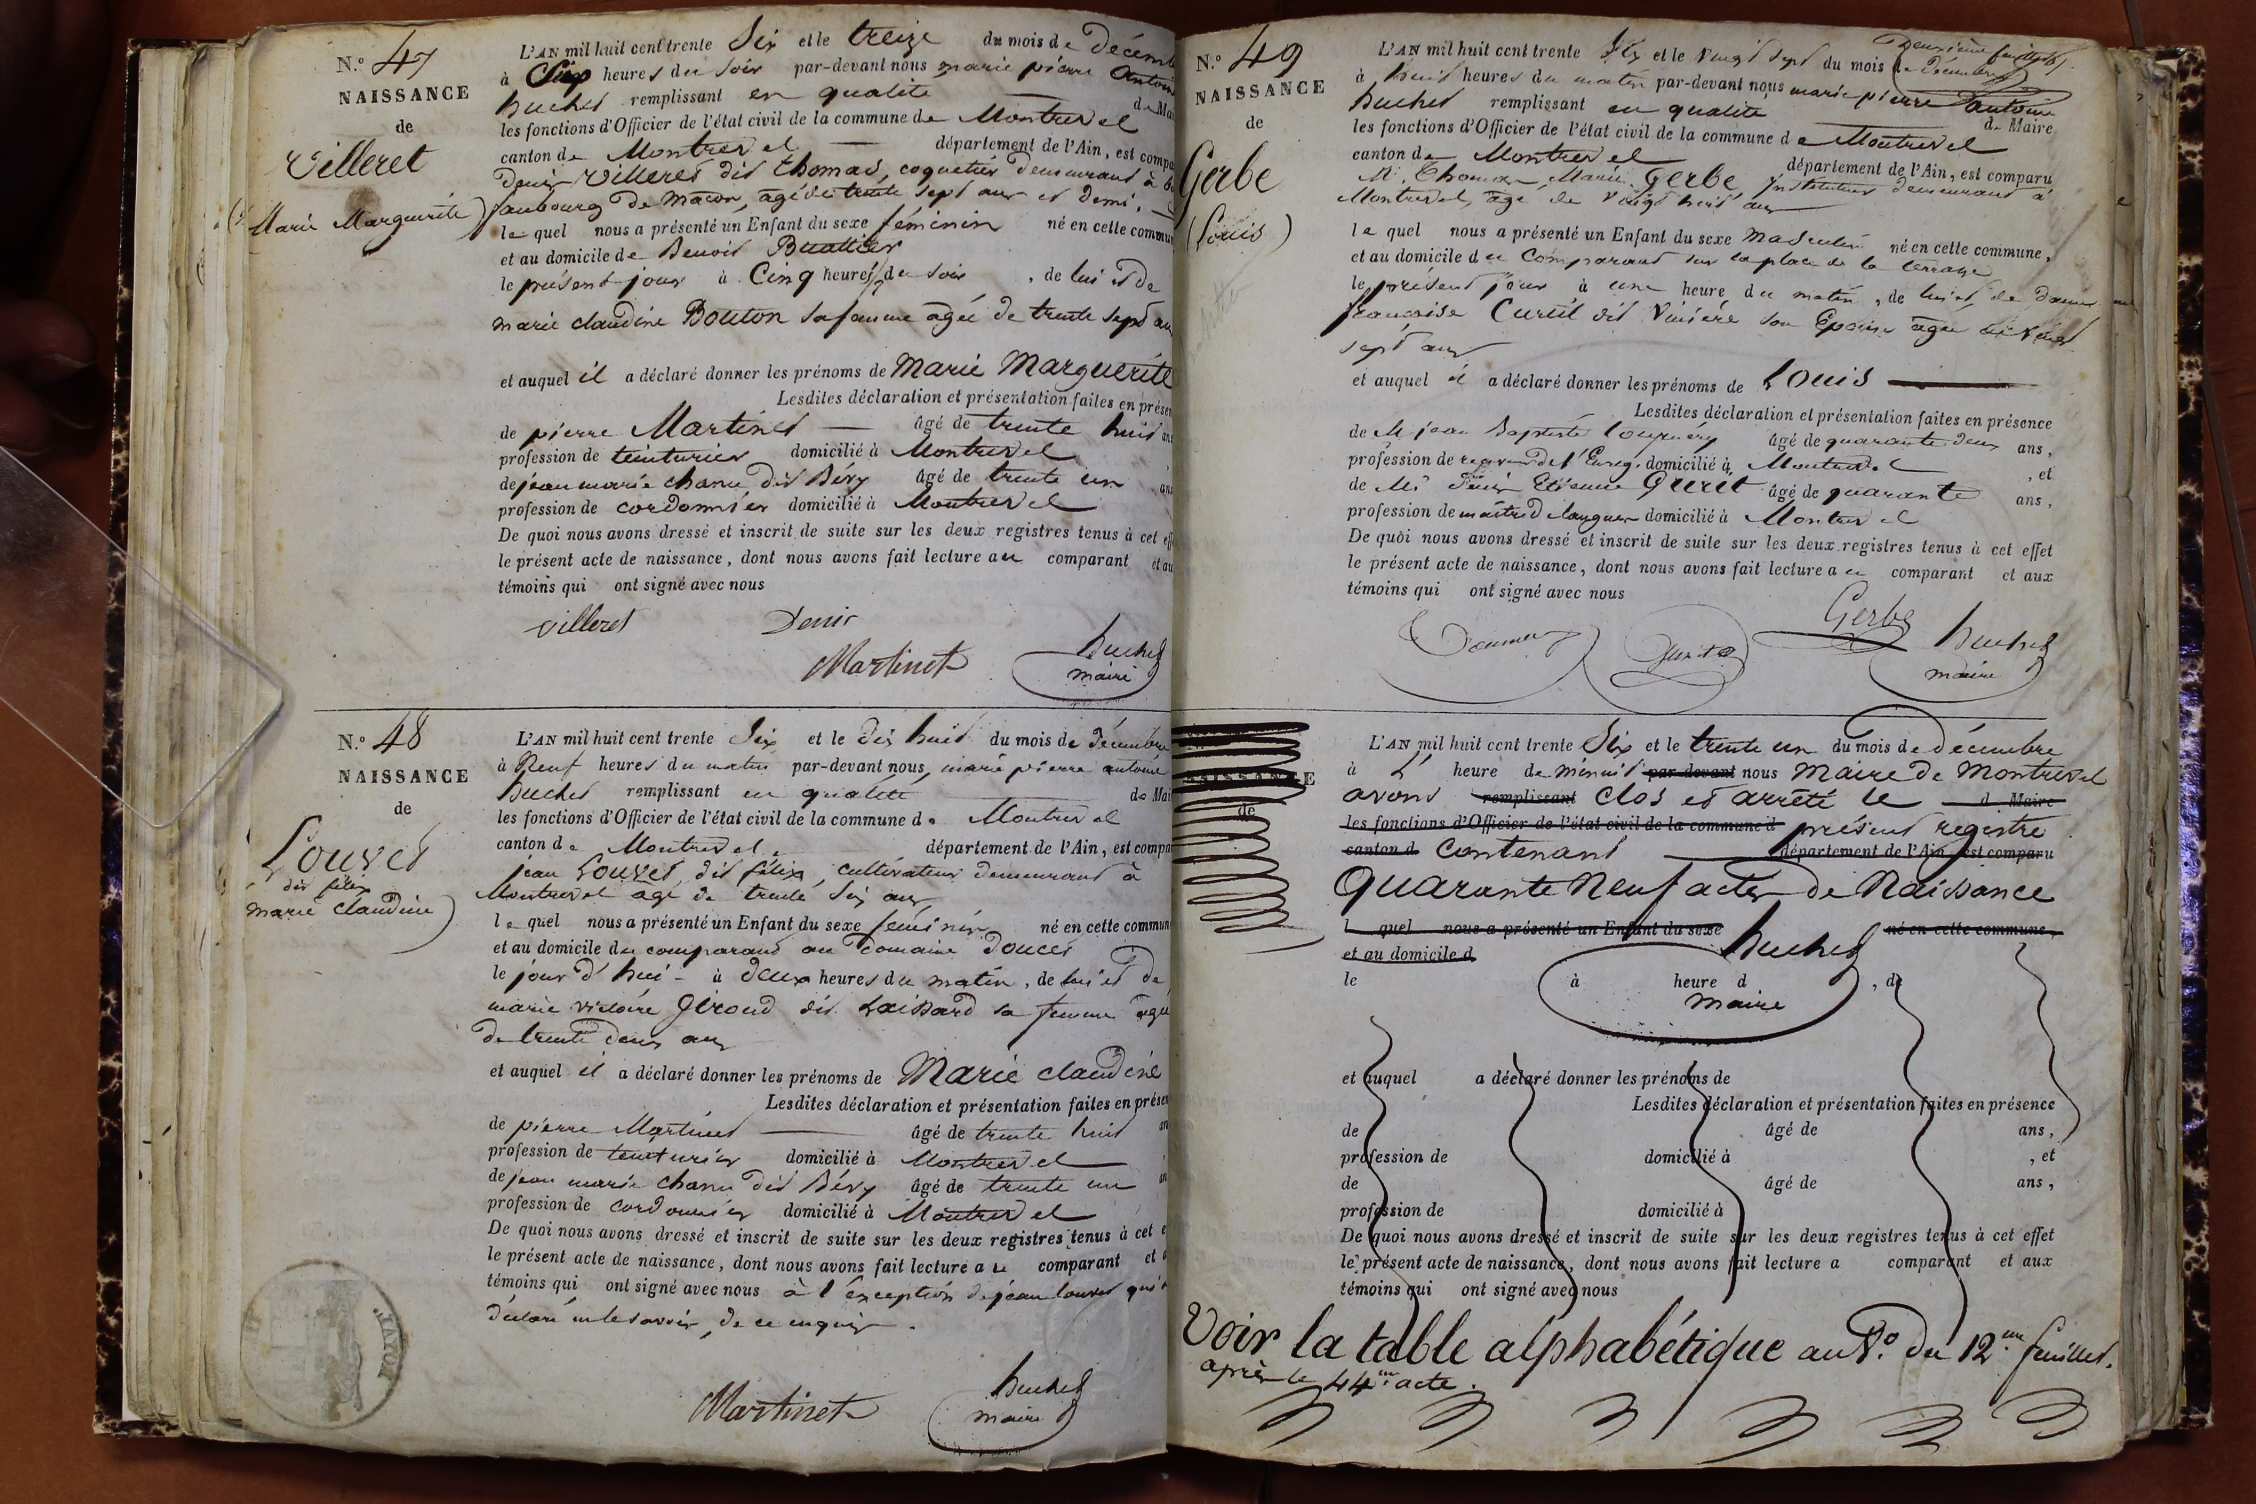 N.o 47
NAISSANCE
de
Villeret
(Marie Marguerite)
L'AN mil huit cent trente Six et le treize du mois de Décemb
à Six heures du soir par-devant nous marie pierre antoine
buchet remplissant en qualité de Mai
les fonctions d'Officier de l'état civil de la commune de Montrevel
canton de Montrevel département de l'Ain, est compa
Denis Villeret dit thomas, coquetier demeurant à
faubourg de Macon, agé de trente sept ans et demi.
le quel nous a présenté un Enfant du sexe féminin né en cette commun
et au domicile de Benoit Buattier
le présent jour à Cinq heures du soir, de lui et de
marie claudine Bouton sa femme agée de trente sept an
et auquel il a déclaré donner les prénoms de Marie Marguerite
Lesdites déclaration et présentation faites en prése
de pierre Martinet âgé de trente huit ans
profession de teinturier domicilié à Montrevel
de jean marie chanu dit Béry âgé de trente un ans
profession de cordonnier domicilié à Montrevel
De quoi nous avons dressé et inscrit de suite sur les deux registres tenus à cet eff
le présent acte de naissance, dont nous avons fait lecture au comparant et au
témoins qui ont signé avec nous
Villeret Denis
Martinet
buchet
maire
N.o 48
NAISSANCE
de
Louvet
dit félix
marie claudine)
L'AN mil huit cent trente Six et le dix huit du mois de décembre
à Neuf heures du matin par-devant nous, marie pierre antoine
Buchet remplissant en qualité de Mai
les fonctions d'Officier de l'état civil de la commune de Montrevel
canton de Montrevel département de l'Ain, est compa
jean Louvet dit félix, cultivateur demeurant à
Montrevel agé de trente six ans
le quel nous a présenté un Enfant du sexe féminin né en cette commun
et au domicile du comparant au domaine doucet
le jour d'hui à deux heures du matin, de lui et de
marie victoire Giroud dit Laissard sa femme agée
de trente deux ans
et auquel il a déclaré donner les prénoms de Marie claudine
Lesdites déclaration et présentation faites en prése
de pierre Martinet âgé de trente huit an
profession de teinturier domicilié à Montrevel
de jean marie chanu dit Béry âgé de trente un
profession de cordonnier domicilié à Montrevel
De quoi nous avons dressé et inscrit de suite sur les deux registres tenus à cet e
le présent acte de naissance, dont nous avons fait lecture au comparant et a
témoins qui ont signé avec nous à l'éxception de jean louvet qui a
déclaré ne le savoir, de ce enquis.
Martinet
buchet
maire
ROYAL
N.o 49
NAISSANCE
de
Gerbe
(Louis)
Deuxième feuillet
L'AN mil huit cent trente Six et le vingt sept du mois de décembre
à huit heures du matin par-devant nous marie pierre antoine
buchet remplissant en qualité de Maire
les fonctions d'Officier de l'état civil de la commune de Montrevel
canton de Montrevel département de l'Ain, est comparu
Mr. Thomas Marie Gerbe, instituteur demeurant à
Montrevel, agé de vingt huit ans
le quel nous a présenté un Enfant du sexe masculin né en cette commune,
et au domicile du comparant sur la place de la terrasse
le présent jour à une heure du matin, de lui et de dame
françoise Curtil dit Vuiséré son Epouse agée de vingt
sept ans
et auquel il a déclaré donner les prénoms de Louis
Lesdites déclaration et présentation faites en présence
de M jean Baptiste âgé de quarante deux ans,
profession de receveur de l'Enreg. domicilié à Montrevel, et
de Mr Denis Etienne Gurit âgé de quarante ans,
profession de maitre de langues domicilié à Montrevel
De quoi nous avons dressé et inscrit de suite sur les deux registres tenus à cet effet
le présent acte de naissance, dont nous avons fait lecture au comparant et aux
témoins qui ont signé avec nous
Gerbe
buchet
maire
NAISSANCE
de
L'AN mil huit cent trente Six et le trente un du mois de décembre
à L' heure de minuit par-devant nous Maire de Montrevel
avons remplissant clos et arrêté le d Maire
les fonctions d'Officier de l'état civil de la commune d présent registre
canton d Contenant département de l'Ain, est comparu
Quarante Neuf actes de Naissance
l quel nous a présenté un Enfant du sexe né en cette commune,
et au domicile d
buchet
le à heure d , de
maire
et auquel a déclaré donner les prénoms de
Lesdites déclaration et présentation faites en présence
de âgé de ans,
profession de domicilié à , et
de âgé de ans,
profession de domicilié à
De quoi nous avons dressé et inscrit de suite sur les deux registres tenus à cet effet
le présent acte de naissance, dont nous avons fait lecture a comparant et aux
témoins qui ont signé avec nous
Voir la table alphabétique au V.o du 12.me feuillet.
après le 44.me acte.